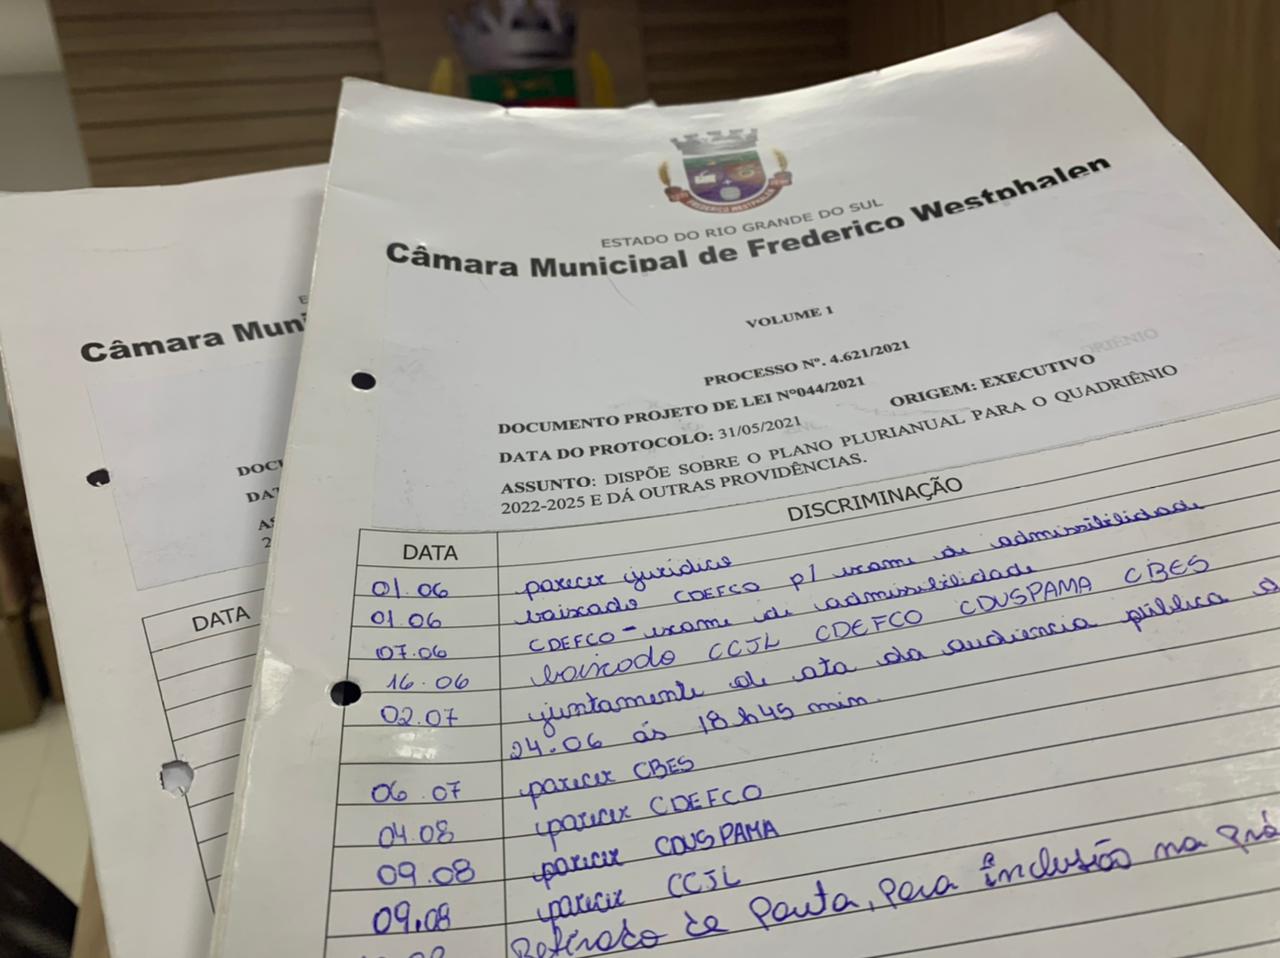 FREDERICO WESTPHALEN
ESTADO DO RIO GRANDE DO SUL
Câmara Municipal de Frederico Westphalen
VOLUME 1
PROCESSO Nº. 4.621/2021
DOCUMENTO PROJETO DE LEI Nº044/2021
ORIGEM: EXECUTIVO
DATA DO PROTOCOLO: 31/05/2021
ASSUNTO: DISPÕE SOBRE O PLANO PLURIANUAL PARA O QUADRIÊNIO
2022-2025 E DÁ OUTRAS PROVIDÊNCIAS.
DATA DISCRIMINAÇÃO
01.06 parecer jurídico
01.06 baixado CDEFCO p/ exame de admissibilidade
07.06 CDEFCO - exame de admissibilidade
16.06 baixado CCJL CDEFCO CDUSPAMA CBES
02.07 juntamente de ata da audiencia pública d
24.06 ás 18h45 min.
06.07 parecer CBES
04.08 parecer CDEFCO
09.08 parecer CDUSPAMA
09.08 parecer CCJL
Retirado de Pauta, para inclusão na Pró
Câmara Muni
DOC
DAT
AS
2
DATA